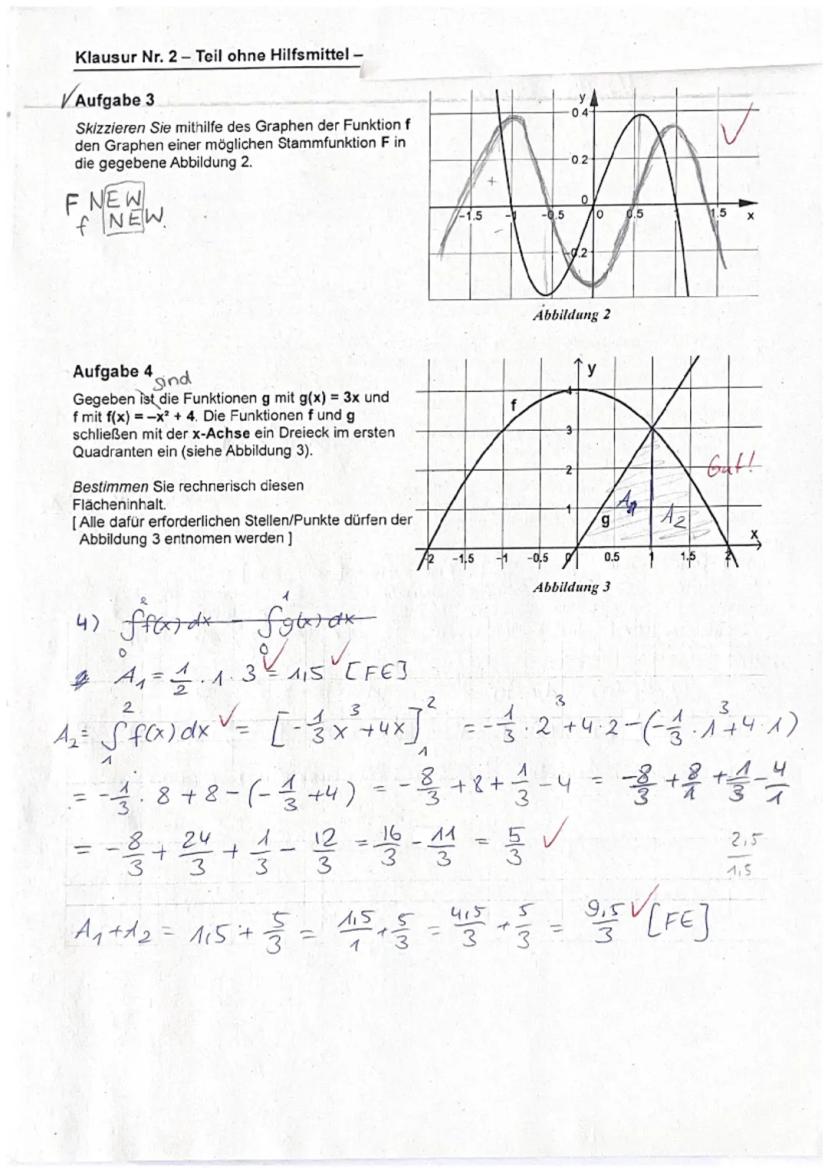 Klausur Nr. 2 – Teil ohne Hilfsmittel –
√ Aufgabe 3
Skizzieren Sie mithilfe des Graphen der Funktion f
den Graphen einer möglichen Stammfunktion F in
die gegebene Abbildung 2.
F NEW
f NEW
y
0 4
0 2
0
-0.2
-1.5 -1 -0.5 0 0.5 1 1.5 x
+
-
✓
Abbildung 2
Aufgabe 4
sind
Gegeben ist die Funktionen g mit g(x) = 3x und
f mit f(x) = –x² + 4. Die Funktionen f und g
schließen mit der x-Achse ein Dreieck im ersten
Quadranten ein (siehe Abbildung 3).
Bestimmen Sie rechnerisch diesen
Flächeninhalt.
[ Alle dafür erforderlichen Stellen/Punkte dürfen der
Abbildung 3 entnomen werden ]
y
4
f
3
2
Gut!
1
A1
A2
g
x
-2 -1.5 -1 -0.5 0 0.5 1 1.5 2
Abbildung 3
4) ∫₀² f(x) dx - ∫₀¹ g(x) dx
A₁ = 1/2 · 1 · 3 ✓ = 1,5 ✓ [FE]
A₂ = ∫₁² f(x) dx ✓ = [-1/3 x³ + 4x]₁² = -1/3 · 2³ + 4·2 - (-1/3 · 1³ + 4·1)
= -1/3 · 8 + 8 - (-1/3 + 4) = -8/3 + 8 + 1/3 - 4 = -8/3 + 8/1 + 1/3 - 4/1
= -8/3 + 24/3 + 1/3 - 12/3 = 16/3 - 11/3 = 5/3 ✓
2,5
1,5
A₁ + A₂ = 1,5 + 5/3 = 1,5/1 + 5/3 = 4,5/3 + 5/3 = 9,5/3 ✓ [FE]